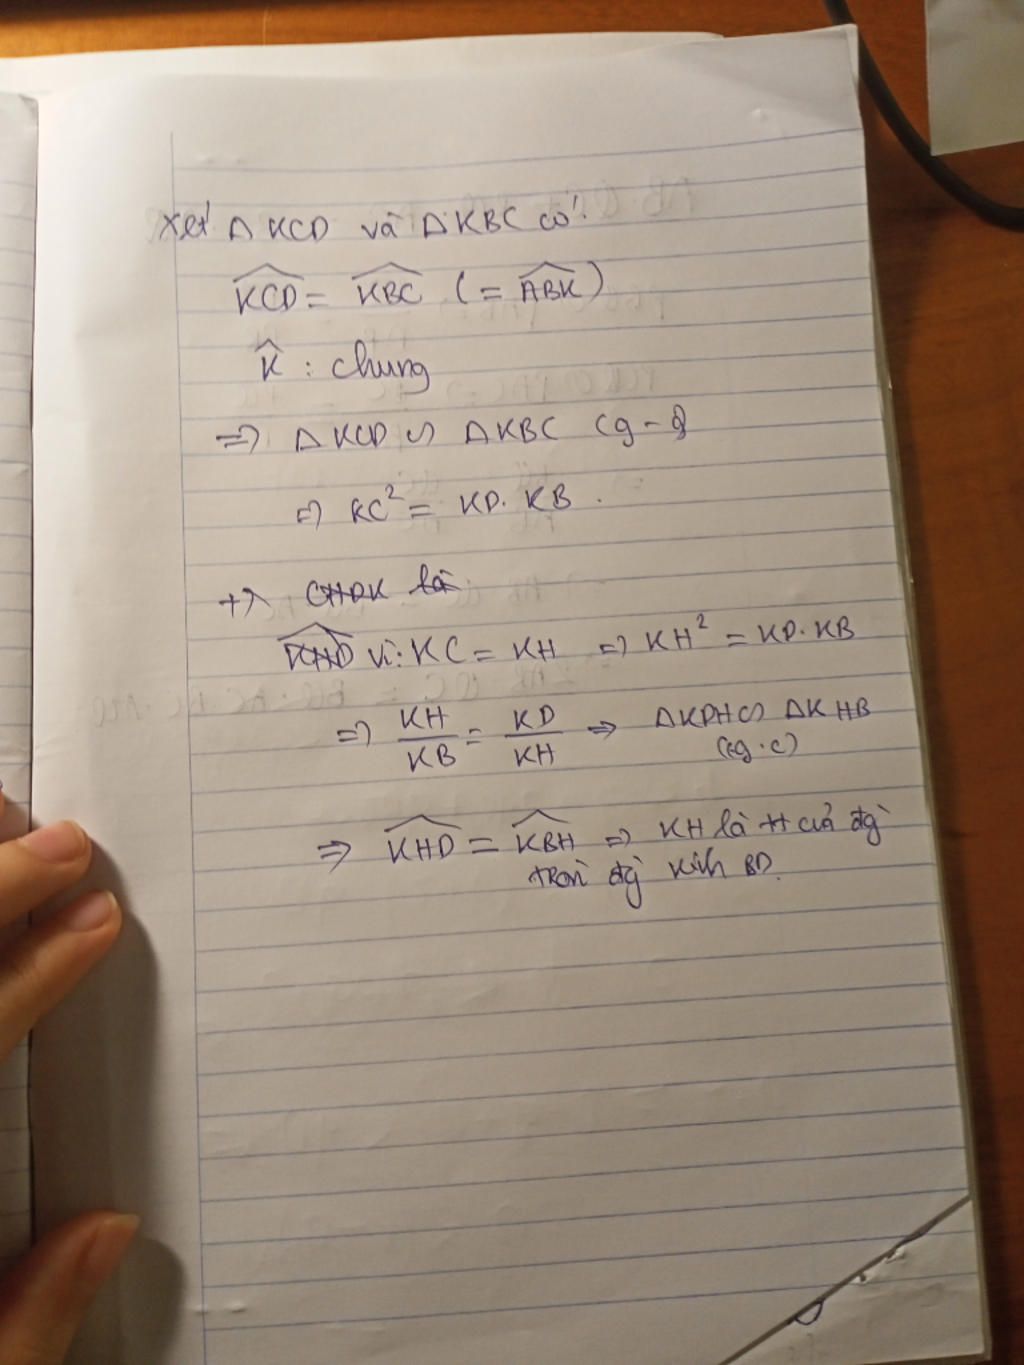 Xét △KCD và △KBC có:
KCD = KBC ( = ABK )
K : chung
=> △KCD ∽ △KBC (g-g)
=> KC² = KD. KB .
+> CHDK là
KHD vì: KC = KH => KH² = KD.KB
=> KH/KB = KD/KH => △KDH ∽ △KHB
(cg.c)
=> KHD = KBH => KH là tt của đg
tròn đg kính BD.